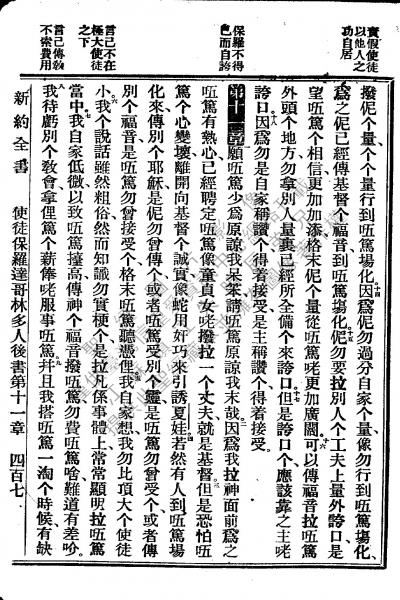 實假使徒
以他人之
功自居
保羅不得
已而自誇
言己不在
極大使徒
之下
言己傳敎
不索費用
撥伲个量、个个量行到㕶篤塲化、十四因爲伲勿過分自家个量、像勿行到㕶篤塲化、
爲之伲已經傳基督个福音到㕶篤塲化、伲勿要拉別人个工夫上量外誇口、是
望㕶篤个相信更加加添、格末伲个量從㕶篤咾更加廣闊、可以傳福音拉㕶篤
外頭个地方、勿拿別人量裏已經所全備个來誇口、但是誇口个、應該靠之主咾
誇口、因爲勿是自家稱讚个得着接受、是主稱讚个得着接受。
第十一章 願㕶篤少爲原諒我呆笨、請㕶篤原諒我末哉、因爲我拉神面前爲之
㕶篤有熱心、已經聘定㕶篤像童貞女咾撥拉一个丈夫、就是基督、但是恐怕㕶
篤个心變壞、離開向基督个誠實、像蛇用奸巧來引誘夏娃、若然有人到㕶篤塲
化來傳別个耶穌、是伲勿曾傳个、或者㕶篤受別个靈、是㕶篤勿曾受个、或者傳
別个福音、是㕶篤勿曾接受个、格末㕶篤聽憑俚、我自家想、我勿比頂大个使徒
小、六我个說話雖然粗俗、然而知識勿實梗个、是拉凡係事體上、常常顯明拉㕶篤
當中、七我自家低微、以致㕶篤擡高、傳神个福音撥㕶篤、勿費㕶篤啥、難道有差吤、
我待虧別个敎會、拿俚篤个薪俸咾服事㕶篤、九并且我搭㕶篤一淘个時候有缺
新約全書 使徒保羅達哥林多人後書第十一章 四百七